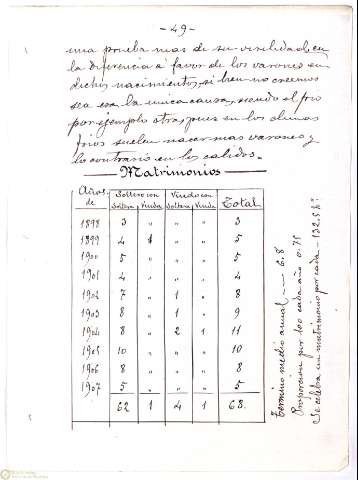 -49-
una prueba mas de su virilidad, en
la diferencia á favor de los varones en
dichos nacimientos, si bien no creemos
sea esa la unica causa, siendo el frio
por ejemplo otras, pues en los climas
frios suelen nacer mas varones y
lo contrario en los calidos.
Matrimonios
Años de | Soltero con | Viudo con | Total
Soltera, y Viuda | Soltera, y Viuda
1898 3 " " " 3
1899 4 1 " " 5
1900 5 " " " 5
1901 4 " " " 4
1902 7 " 1 " 8
1903 8 " 1 " 9
1904 8 " 2 1 11
1905 10 " " " 10
1906 8 " " " 8
1907 5 " " " 5
62 1 4 1 68.
Término medio anual — 6.8
Proporcion por 100 cada año 0.75
Se celebra un matrimonio por cada — 132.5 h.